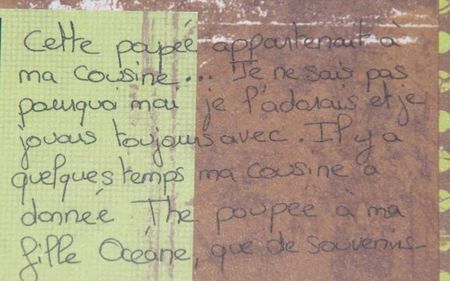 Cette poupée appartenait à
ma cousine... Je ne sais pas
pourquoi mai je l'adorais et je
jouais toujours avec. Il y a
quelques temps ma cousine a
donnée The poupée à ma
fille Océane, que de souvenirs